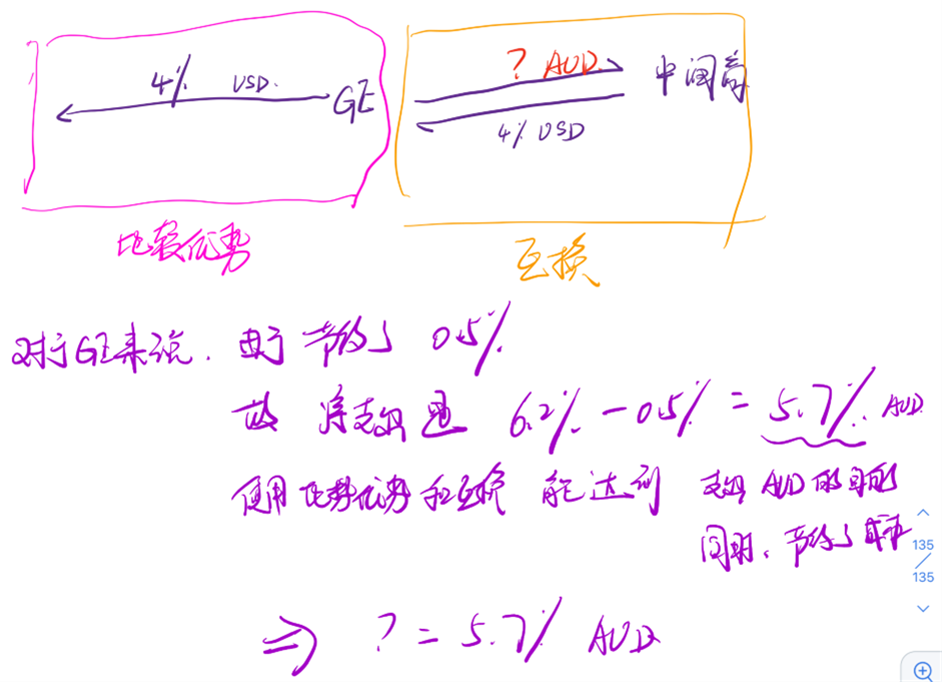 4% USD. GE
? AUD 中间商
4% USD
比较优势
互换
对于GE来说. 由于 节约了 0.5%
故 净支出是 6.2% - 0.5% = 5.7% AUD
使用比势优势和互换 能达到 支出 AUD 的目的
同时、节约了成本
135
/
135
⇒ ? = 5.7% AUD